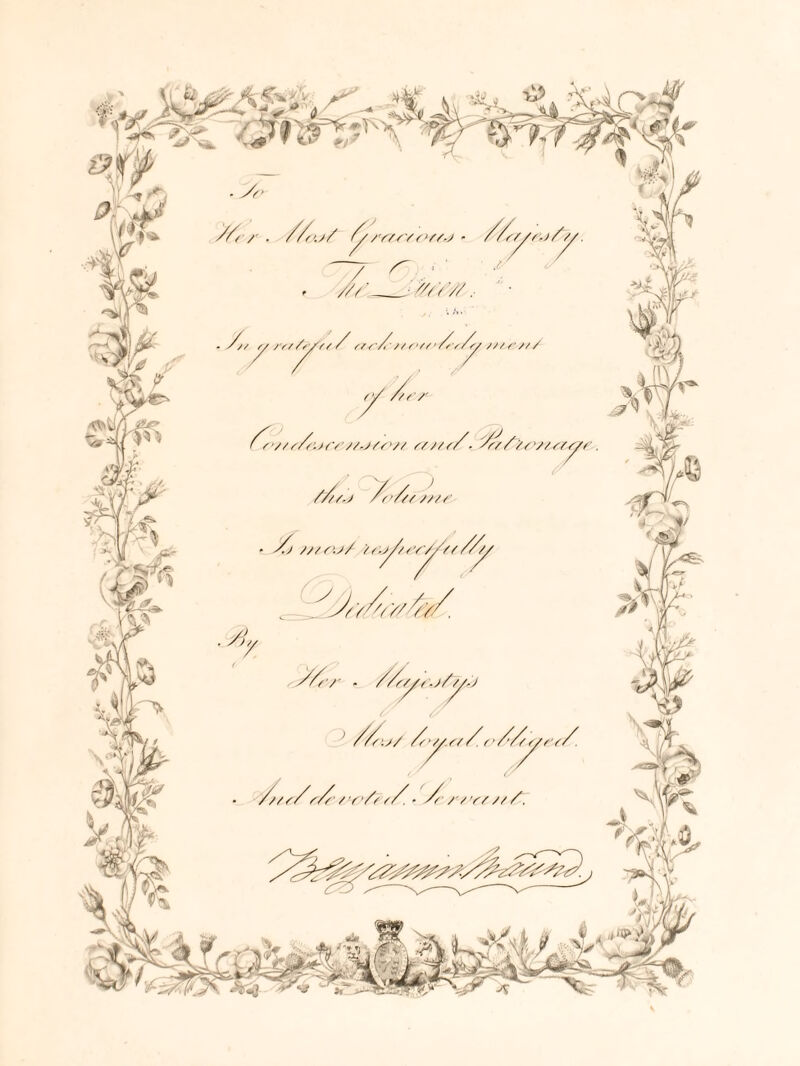 To
Her Most Gracious Majesty.
The Queen.
In grateful acknowledgment
of her
Condescension and Patronage.
this Volume
Is most respectfully
Dedicated.
By
Her Majestys
Most loyal. obliged.
And devoted. Servant.
Benjamin Maund.